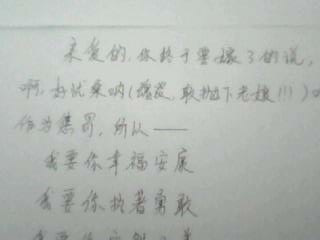 亲爱的,你终于要嫁了的说,
啊,好忧桑呐(嫂发,敢抛下老娘!!!)
作为惩罚,所以——
我要你幸福安康
我要你执著勇敢
我要你